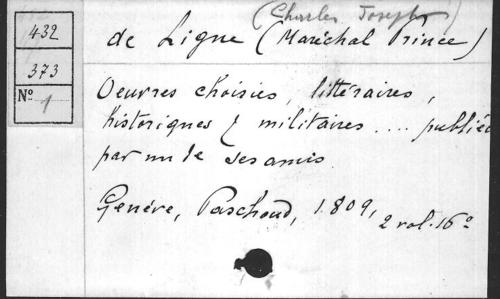 432
373
Nº 1
(Charles Joseph)
de Ligne (Maréchal Prince)
Oeuvres choisies, littéraires,
historiques & militaires .... publiées
par un de ses amis
Genève, Paschoud, 1809,
2 vol. 16º